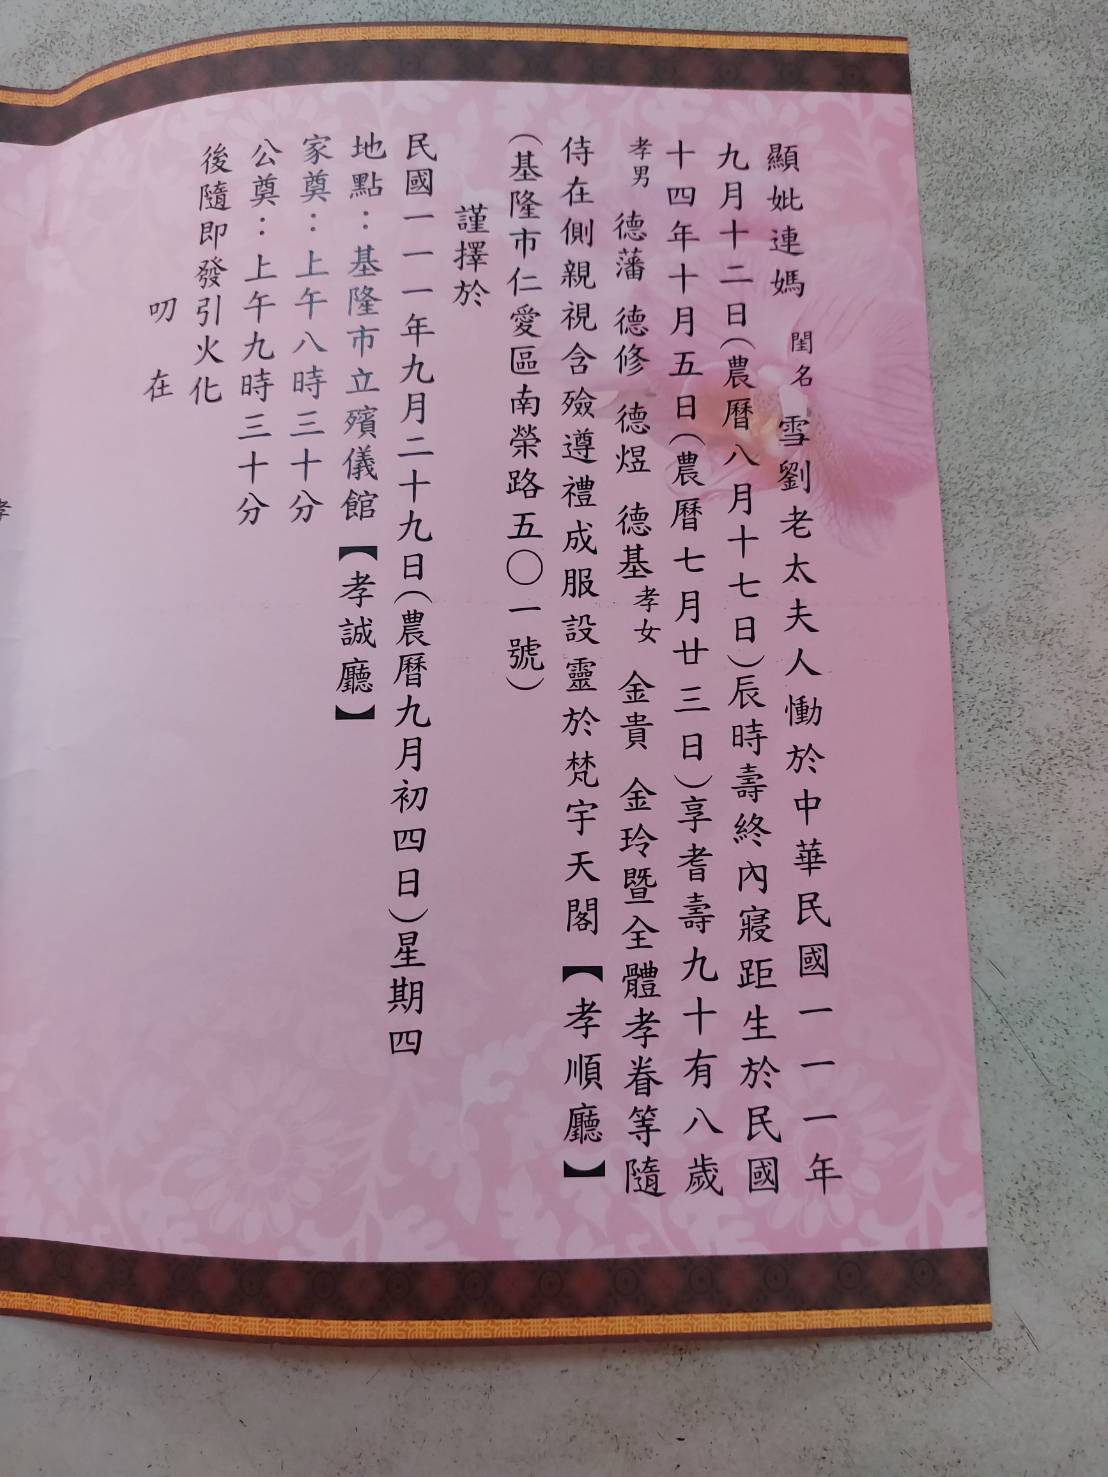 顯妣連媽 閨名 雪劉老太夫人慟於中華民國一一一年
九月十二日(農曆八月十七日)辰時壽終內寢距生於民國
十四年十月五日(農曆七月廿三日)享耆壽九十有八歲
孝男 德藩 德修 德煜 德基 孝女 金貴 金玲暨全體孝眷等隨
侍在側親視含殮遵禮成服設靈於梵宇天閣【孝順廳】
(基隆市仁愛區南榮路五〇一號)
謹擇於
民國一一一年九月二十九日(農曆九月初四日)星期四
地點：基隆市立殯儀館【孝誠廳】
家奠：上午八時三十分
公奠：上午九時三十分
後隨即發引火化
叨 在